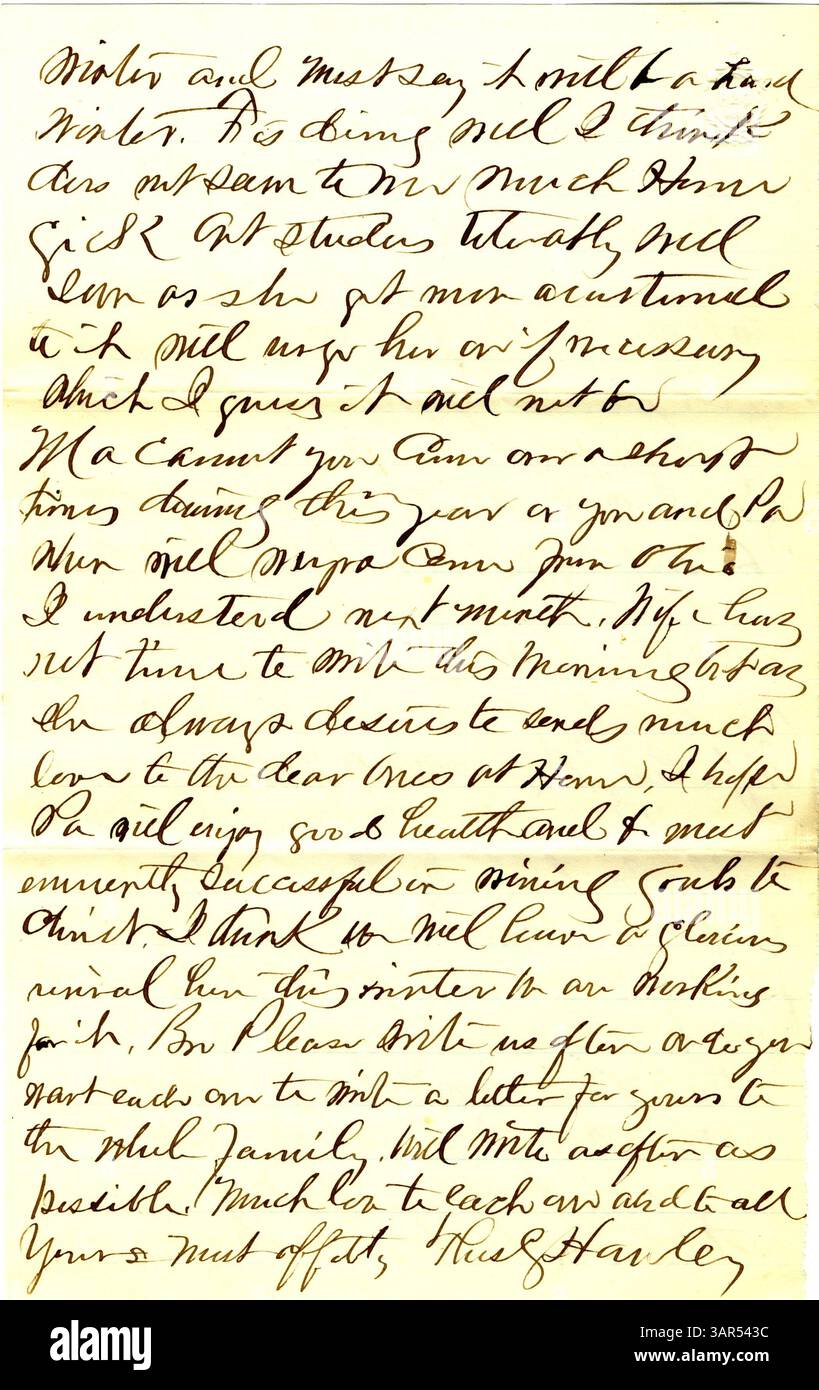 Winter and must say it will be a hard
Winter. F is doing well I think
does not seem to me much Home
Sick but studies tolerably well
Soon as she get more acustomed
to it will urge her on if necessary
which I guess it will not be
Ma cannot you Come over a short
time during this year or you and Pa
When will Come from Ohio
I understood next month. Wife has
not time to write this Morning but as
she always desires to sends much
love to the dear Ones at Home, I hope
Pa will enjoy good health and be most
eminently successful in wining souls to
Christ. I think we will have a glorious
revival here this winter We are working
for it. Please write us often or do you
want each one to write a letter for yours to
the whole Family. Will write as often as
possible. Much love to each one and to all
Yours Most affetly Hawley
alamy
Image ID: 3AR543C
www.alamy.com